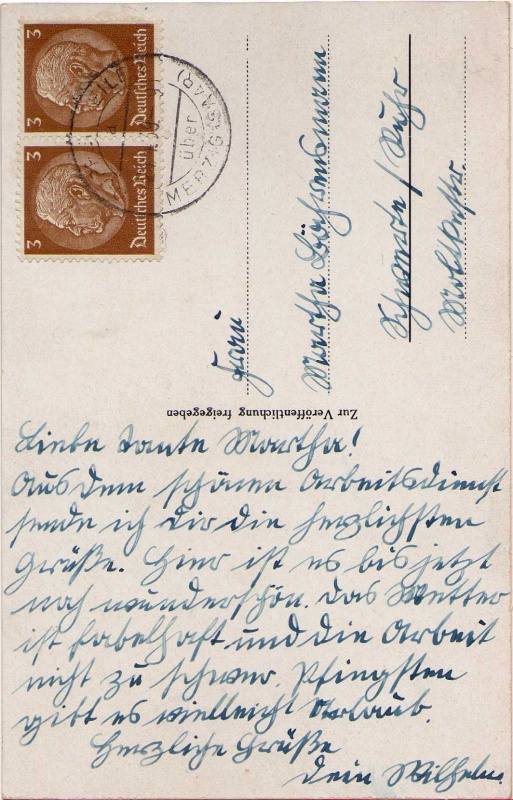 3
Deutsches Reich
3
Deutsches Reich
über
MERZIG (SAAR)
Frau
Martha
Schwerte / Ruhr
Zur Veröffentlichung freigegeben
Liebe Tante Martha!
Aus dem schönen Arbeitsdienst
sende ich Dir die herzlichsten
Grüße. Hier ist es bis jetzt
noch wunderschön. Das Wetter
ist fabelhaft und die Arbeit
nicht zu schwer. Pfingsten
gibt es vielleicht Urlaub.
Herzliche Grüße
Dein Wilhelm.